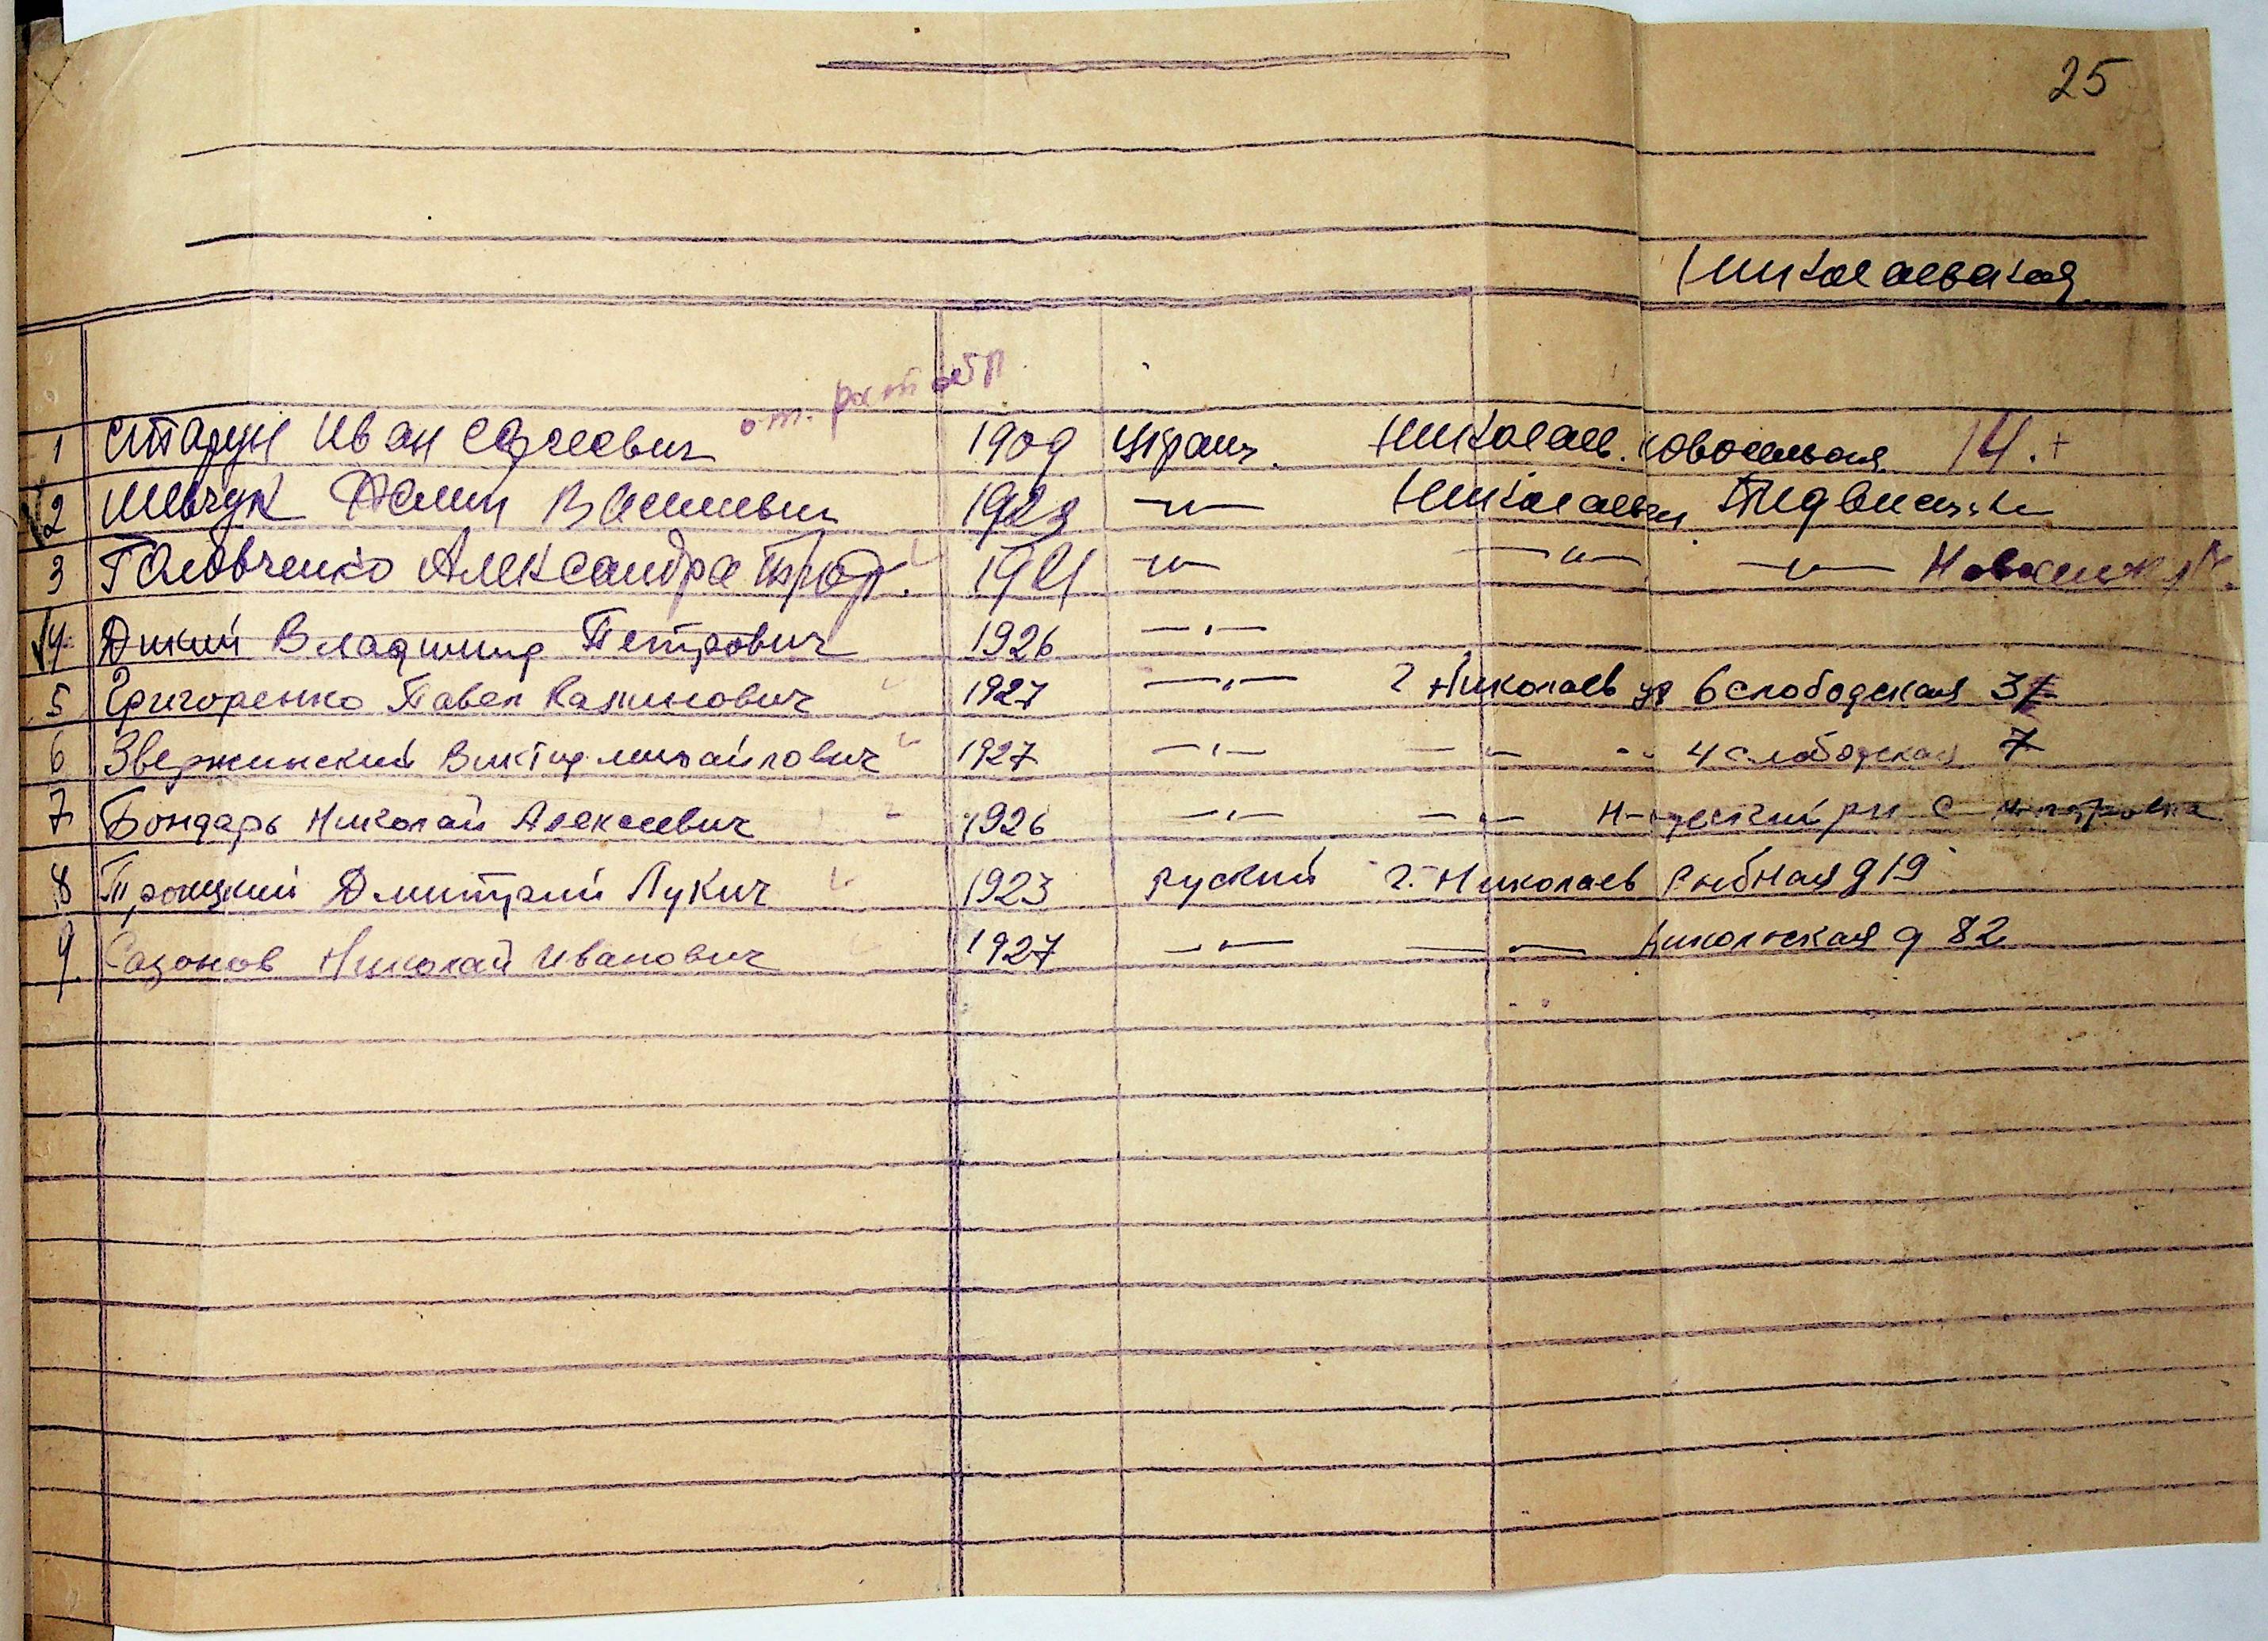 25
Николаевская
от.
1 Старун Иван Сергеевич 1909 Украин. Николаев. 14.+
2 Шевчук Василевич 1923 —"— Николаевск.
3 Головченко Александра 1921 —"— —"— —"—
4 Дикий Владимир Петрович 1926 —"—
5 Григоренко Павел Калинович 1927 —"— г Николаев ул 6 слободская 37
6 Звержинский Виктор михайлович 1927 —"— —"— " 4 слободская 7
7 Бондарь Николай Алексеевич 1926 —"— —"— рн с
8 Троицкий Дмитрий Лукич 1923 руский г. Николаев Рыбная д 19
9. Сазонов Николай Иванович 1927 —"— —"— Никольская д 82